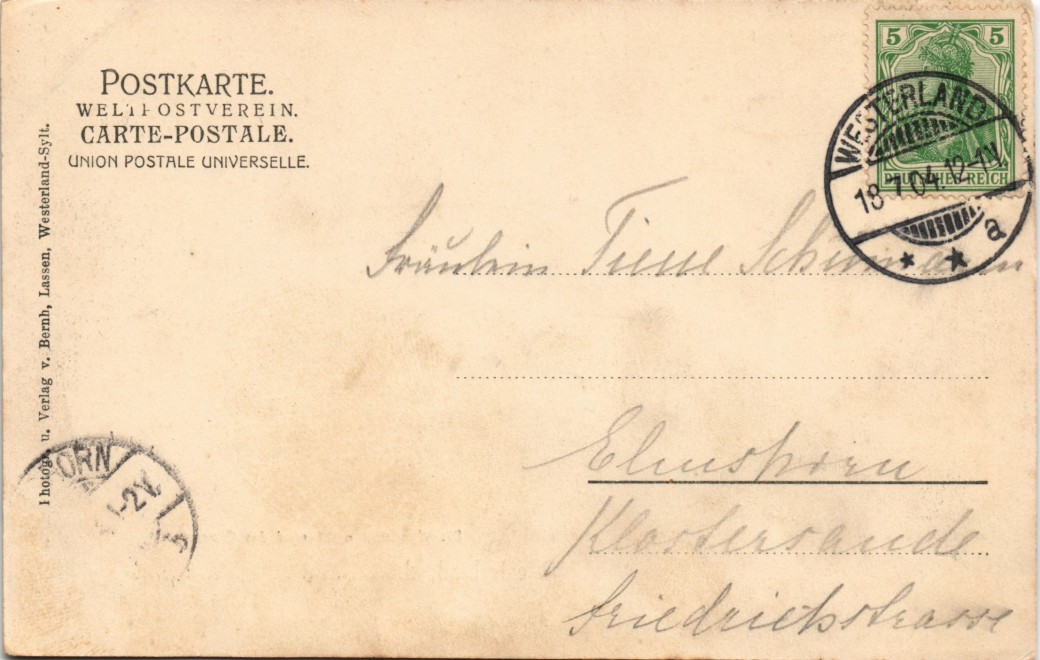 POSTKARTE.
WELTPOSTVEREIN.
CARTE-POSTALE.
UNION POSTALE UNIVERSELLE.
Photogr. u. Verlag v. Bernh, Lassen, Westerland-Sylt.
5 5
DEUTSCHES REICH
WESTERLAND
18 7 04. 12-1N.
a
Fräulein Tiene Schümann
Elmshorn
Klostersande
Friedrichstrasse
ORN
-2V.